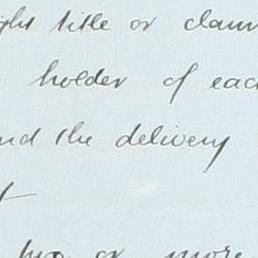 right title or claim
holder of each
and the delivery
two or more